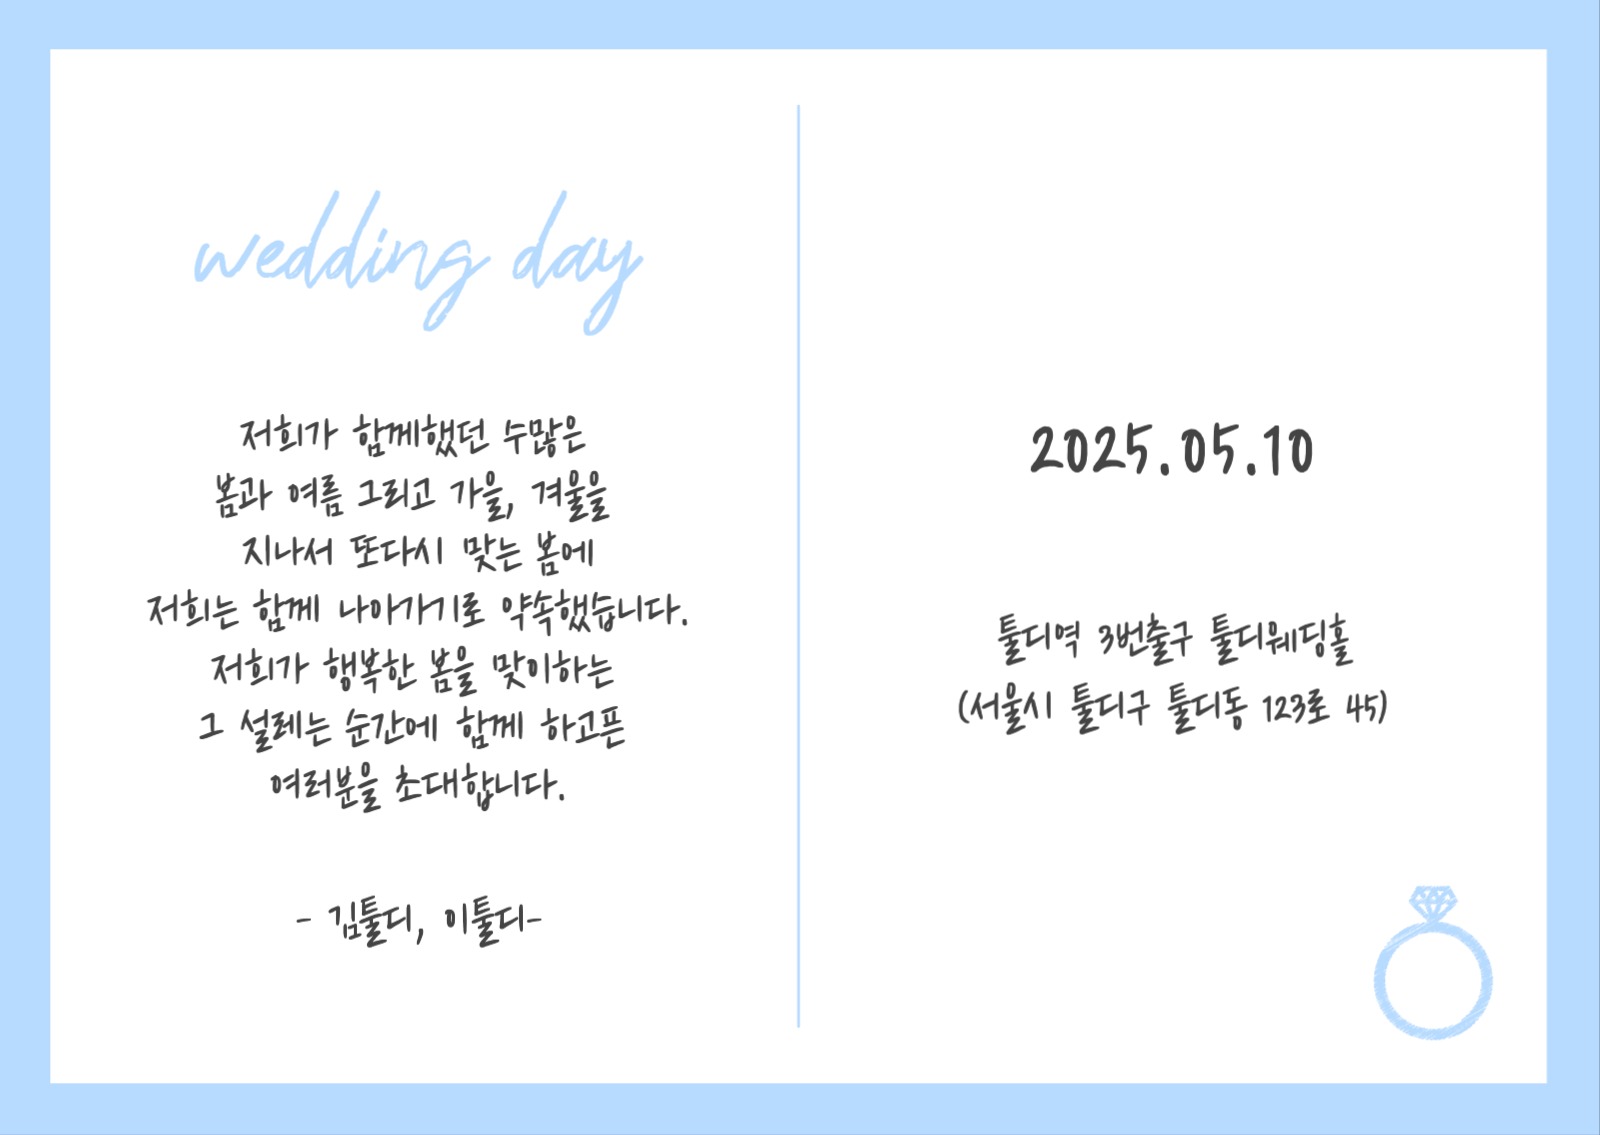 wedding day
저희가 함께했던 수많은
봄과 여름 그리고 가을, 겨울을
지나서 또다시 맞는 봄에
저희는 함께 나아가기로 약속했습니다.
저희가 행복한 봄을 맞이하는
그 설레는 순간에 함께 하고픈
여러분을 초대합니다.
- 김툴디, 이툴디-
2025.05.10
툴디역 3번출구 툴디웨딩홀
(서울시 툴디구 툴디동 123로 45)